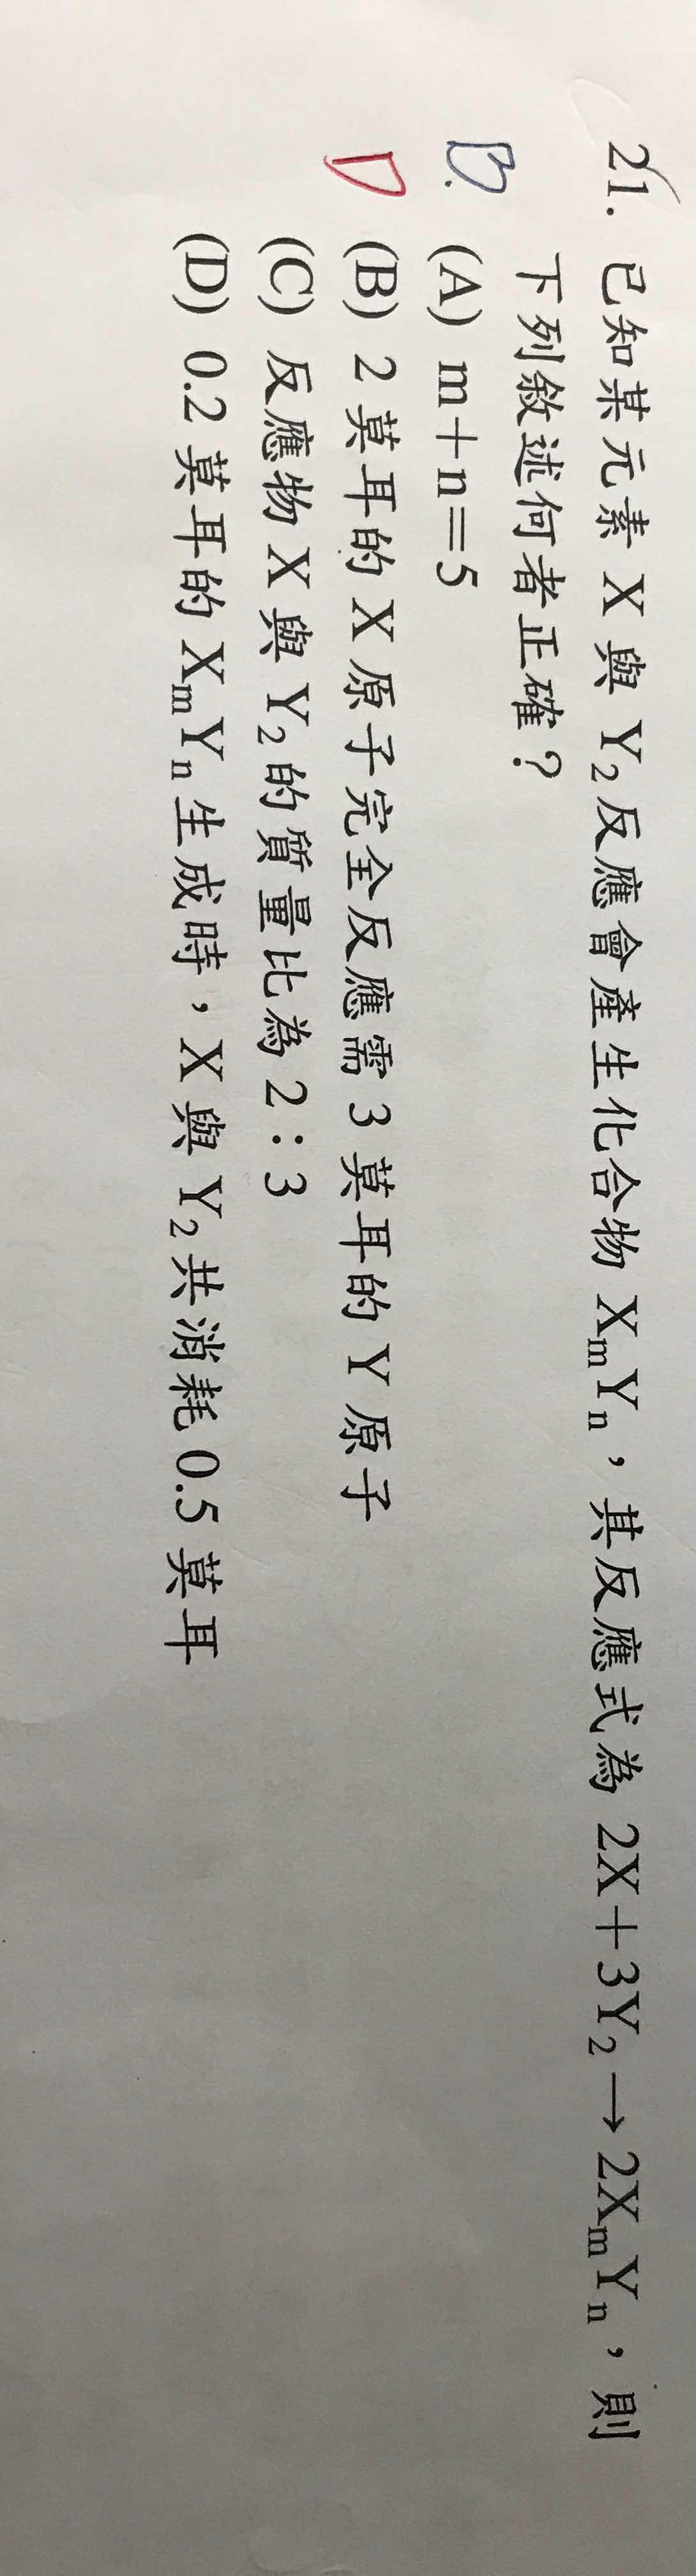 21. 已知某元素 X 與 Y₂反應會產生化合物 XₘYₙ，其反應式為 2X＋3Y₂→2XₘYₙ，則
下列敘述何者正確？
B. (A) m＋n＝5
D (B) 2 莫耳的 X 原子完全反應需 3 莫耳的 Y 原子
(C) 反應物 X 與 Y₂的質量比為 2：3
(D) 0.2 莫耳的 XₘYₙ生成時，X 與 Y₂共消耗 0.5 莫耳